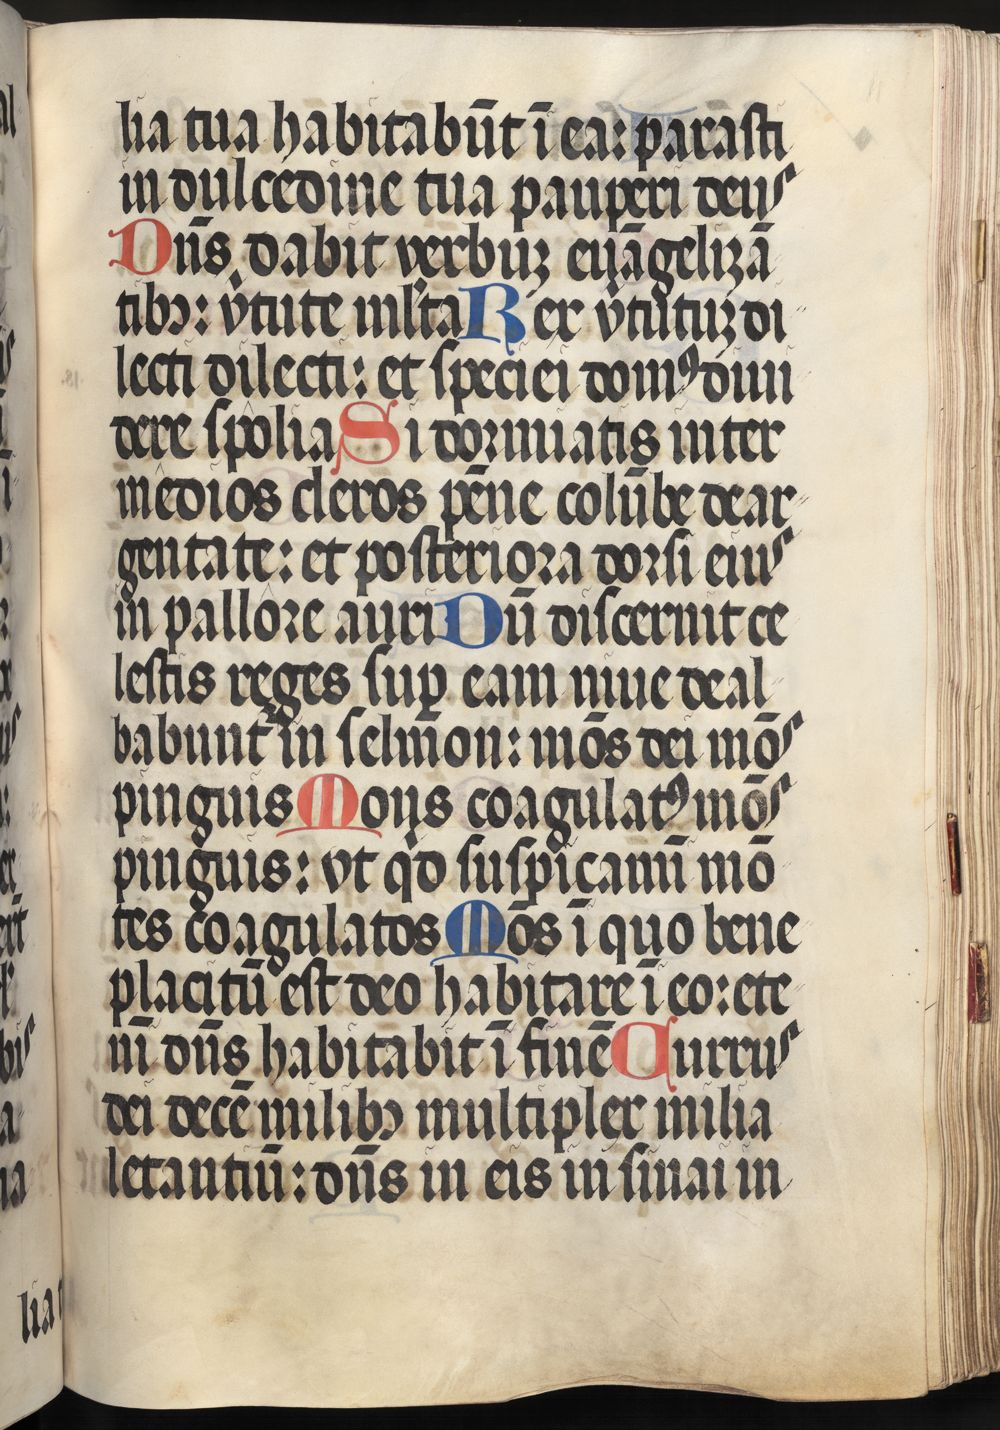 lia tua habitabūt ī ea: parasti
in dulcedine tua pauperi deus
Dn̄s dabit verbuꝫ euāgelizā
tibꝫ: v̓tute ml̓ta Rex v̓tutuꝫ di
lecti dilecti: et speciei domꝰ diui
dere spolia Si dormiatis inter
medios cleros pēne colūbe dear
gentate: et posteriora dorsi eius
in pallore auri Dū discernit ce
lestis reges suꝑ eam niue deal
babunt̓ in selmon: mōs dei mōs
pinguis Mons coagulatꝰ mōs
pinguis: vt qd̄ suspicamī mō
tes coagulatos Mōs ī quo bene
placitū est deo habitare ī eo: ete
nī dn̄s habitabit ī finē Currus
dei decē milibꝫ multiplex milia
letantiū: dn̄s in eis in sinai in
lia t